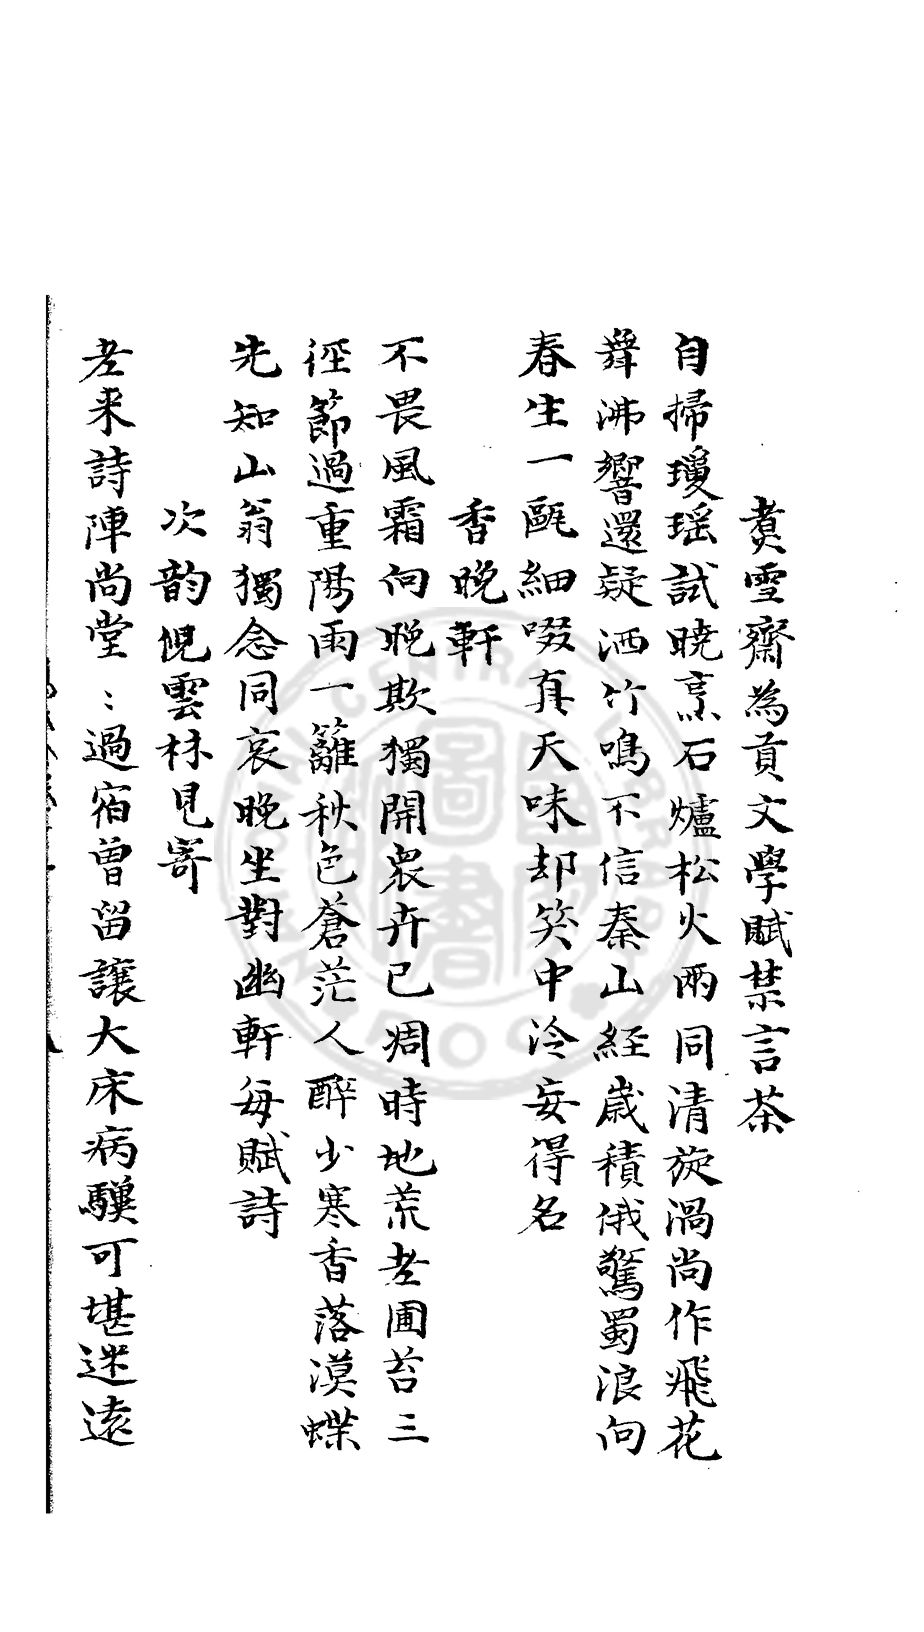 煑雪齋為貢文學賦禁言茶
自掃瓊瑶試曉烹石爐松火兩同清旋渦尚作飛花
舞沸響還疑洒竹鳴不信秦山經歳積俄驚蜀浪向
春生一甌細啜真天味却笑中泠妄得名
香晚軒
不畏風霜向晚欺獨開衆卉已凋時地荒老圃苔三
徑節過重陽雨一籬秋色蒼茫人醉少寒香落漠蝶
先知山翁獨念同哀晚坐對幽軒每賦詩
次韵倪雲林見寄
老来詩陣尚堂：過宿曾留讓大床病驥可堪迷遠